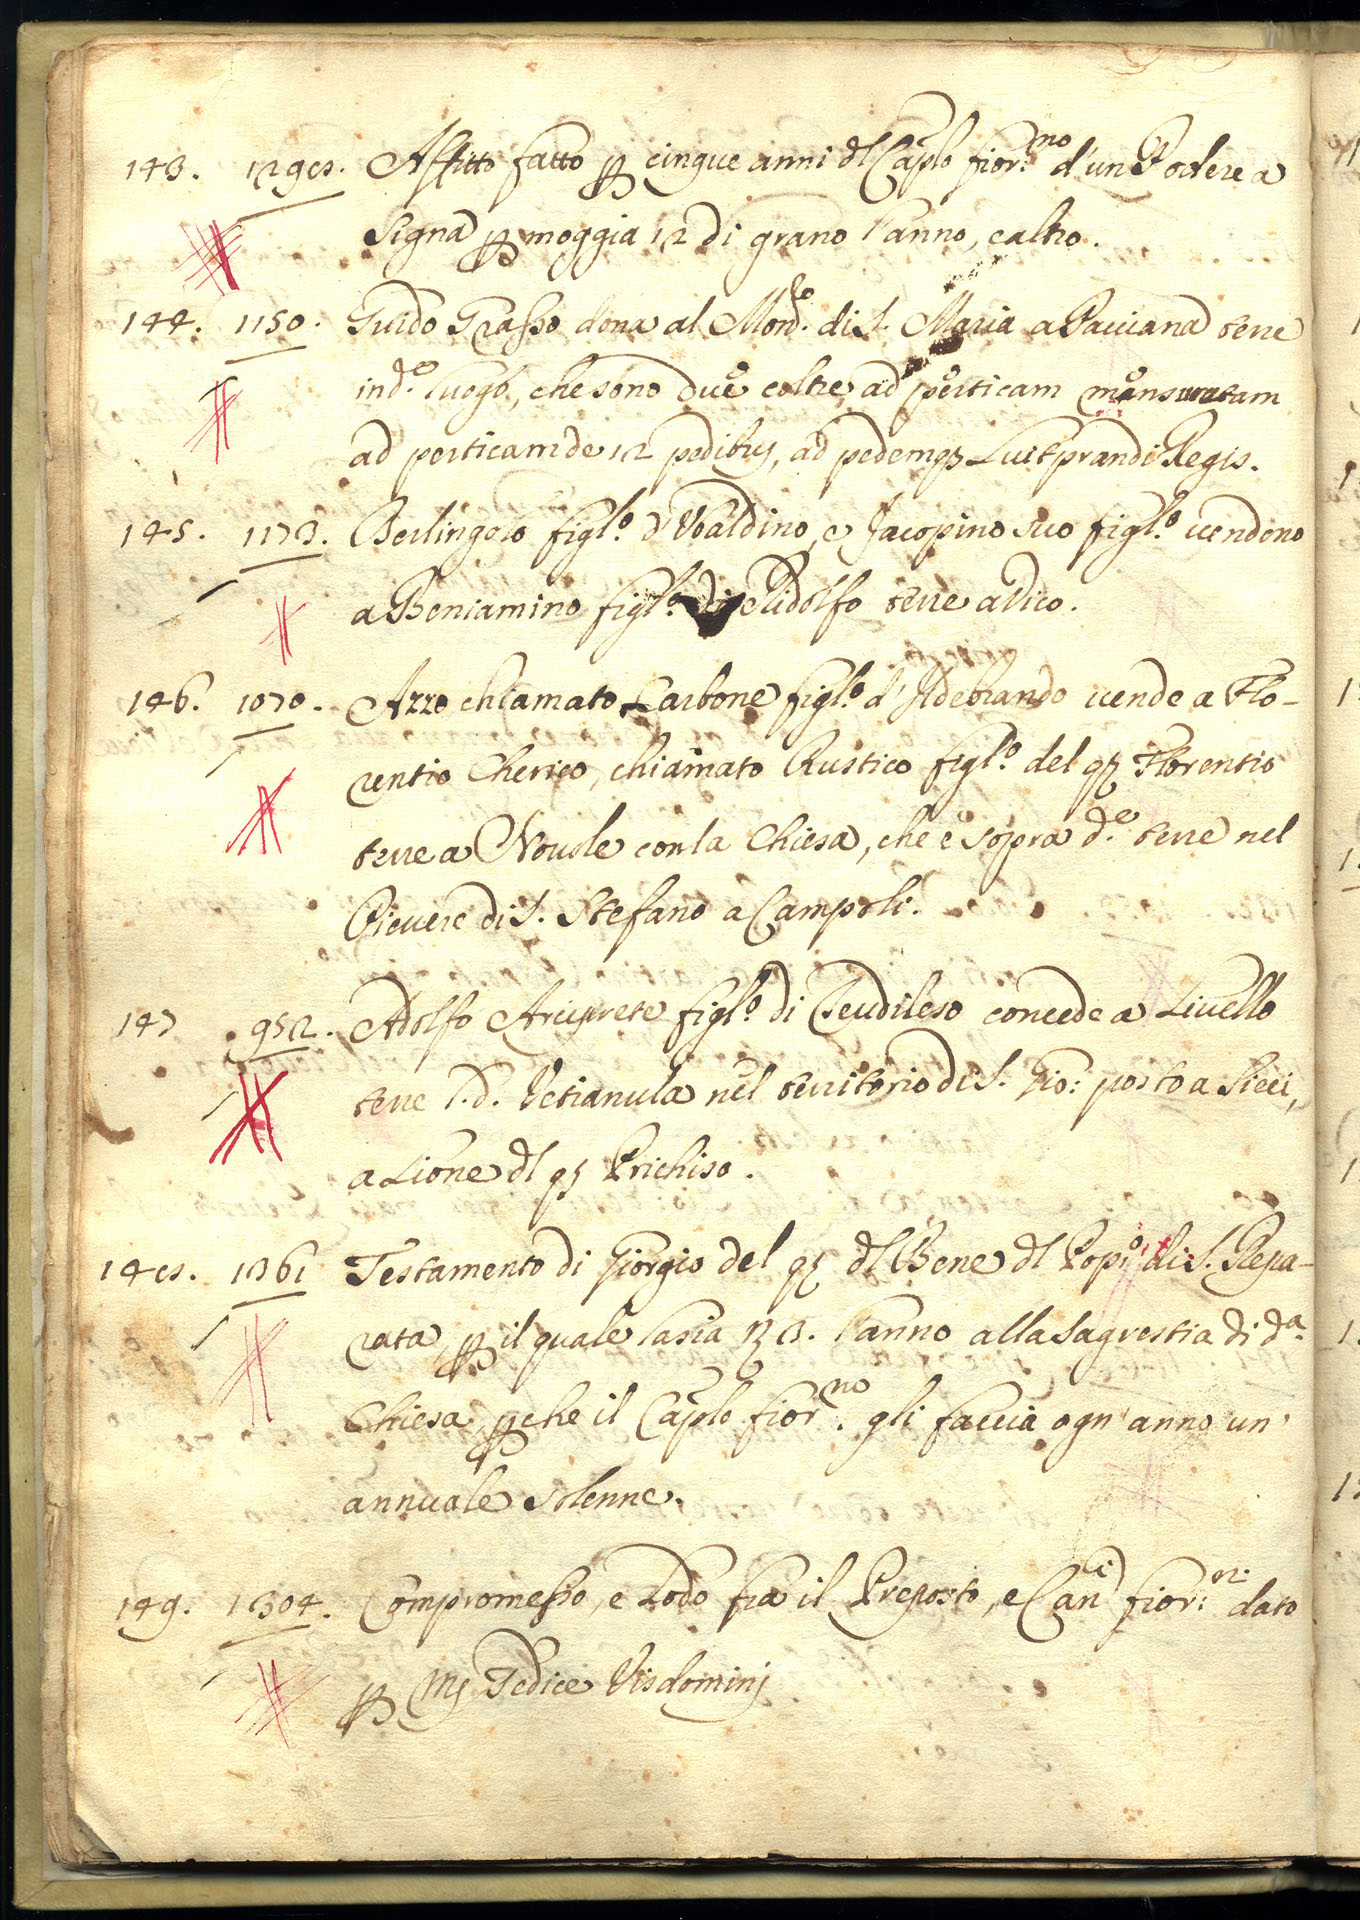 143. 1298. Affitto fatto p cinque anni dl Caplo fior.no d'un Podere a
Signa p moggia 12 di grano l'anno, e altro.
144. 1150. Guido Grasso dona al Mon.o di S. Maria a Pacciana terre
in d.o luogo, che sono due coltre ad perticam mensuratam
ad perticam de 12 pedibus, ad pedem q Luitprandi Regis.
145. 1173. Berlingolo figl.o d'Ubaldino, e Jacopino suo figl.o vendono
a Beniamino figl.o di Ridolfo terre a Vico.
146. 1070. Azzo chiamato Carbone figl.o d'Ildebrando vende a Flo-
rentio Cherico, chiamato Rustico figl.o del q Florentio
terre a Novole con la Chiesa, che è sopra d.e terre nel
Pievere di S. Stefano a Campoli.
147 952. Adolfo Arciprete figl.o di Teudileso concede a Livello
terre l.d. Vetianula nel territorio di S. Gio: posto a Sieci,
a Lione dl q Prichiso.
148. 1361 Testamento di Giorgio del q dl Bene dl Pop.o di S. Repa-
rata, p il quale lascia 3. l'anno alla Sagrestia di d.a
Chiesa, pche il Caplo fior.no gli faccia ogn'anno un'
annuale solenne.
149. 1304. Compromesso, e Lodo fra il Preposto, e Can.ci fior.ni dato
p M Tedice Visdomini